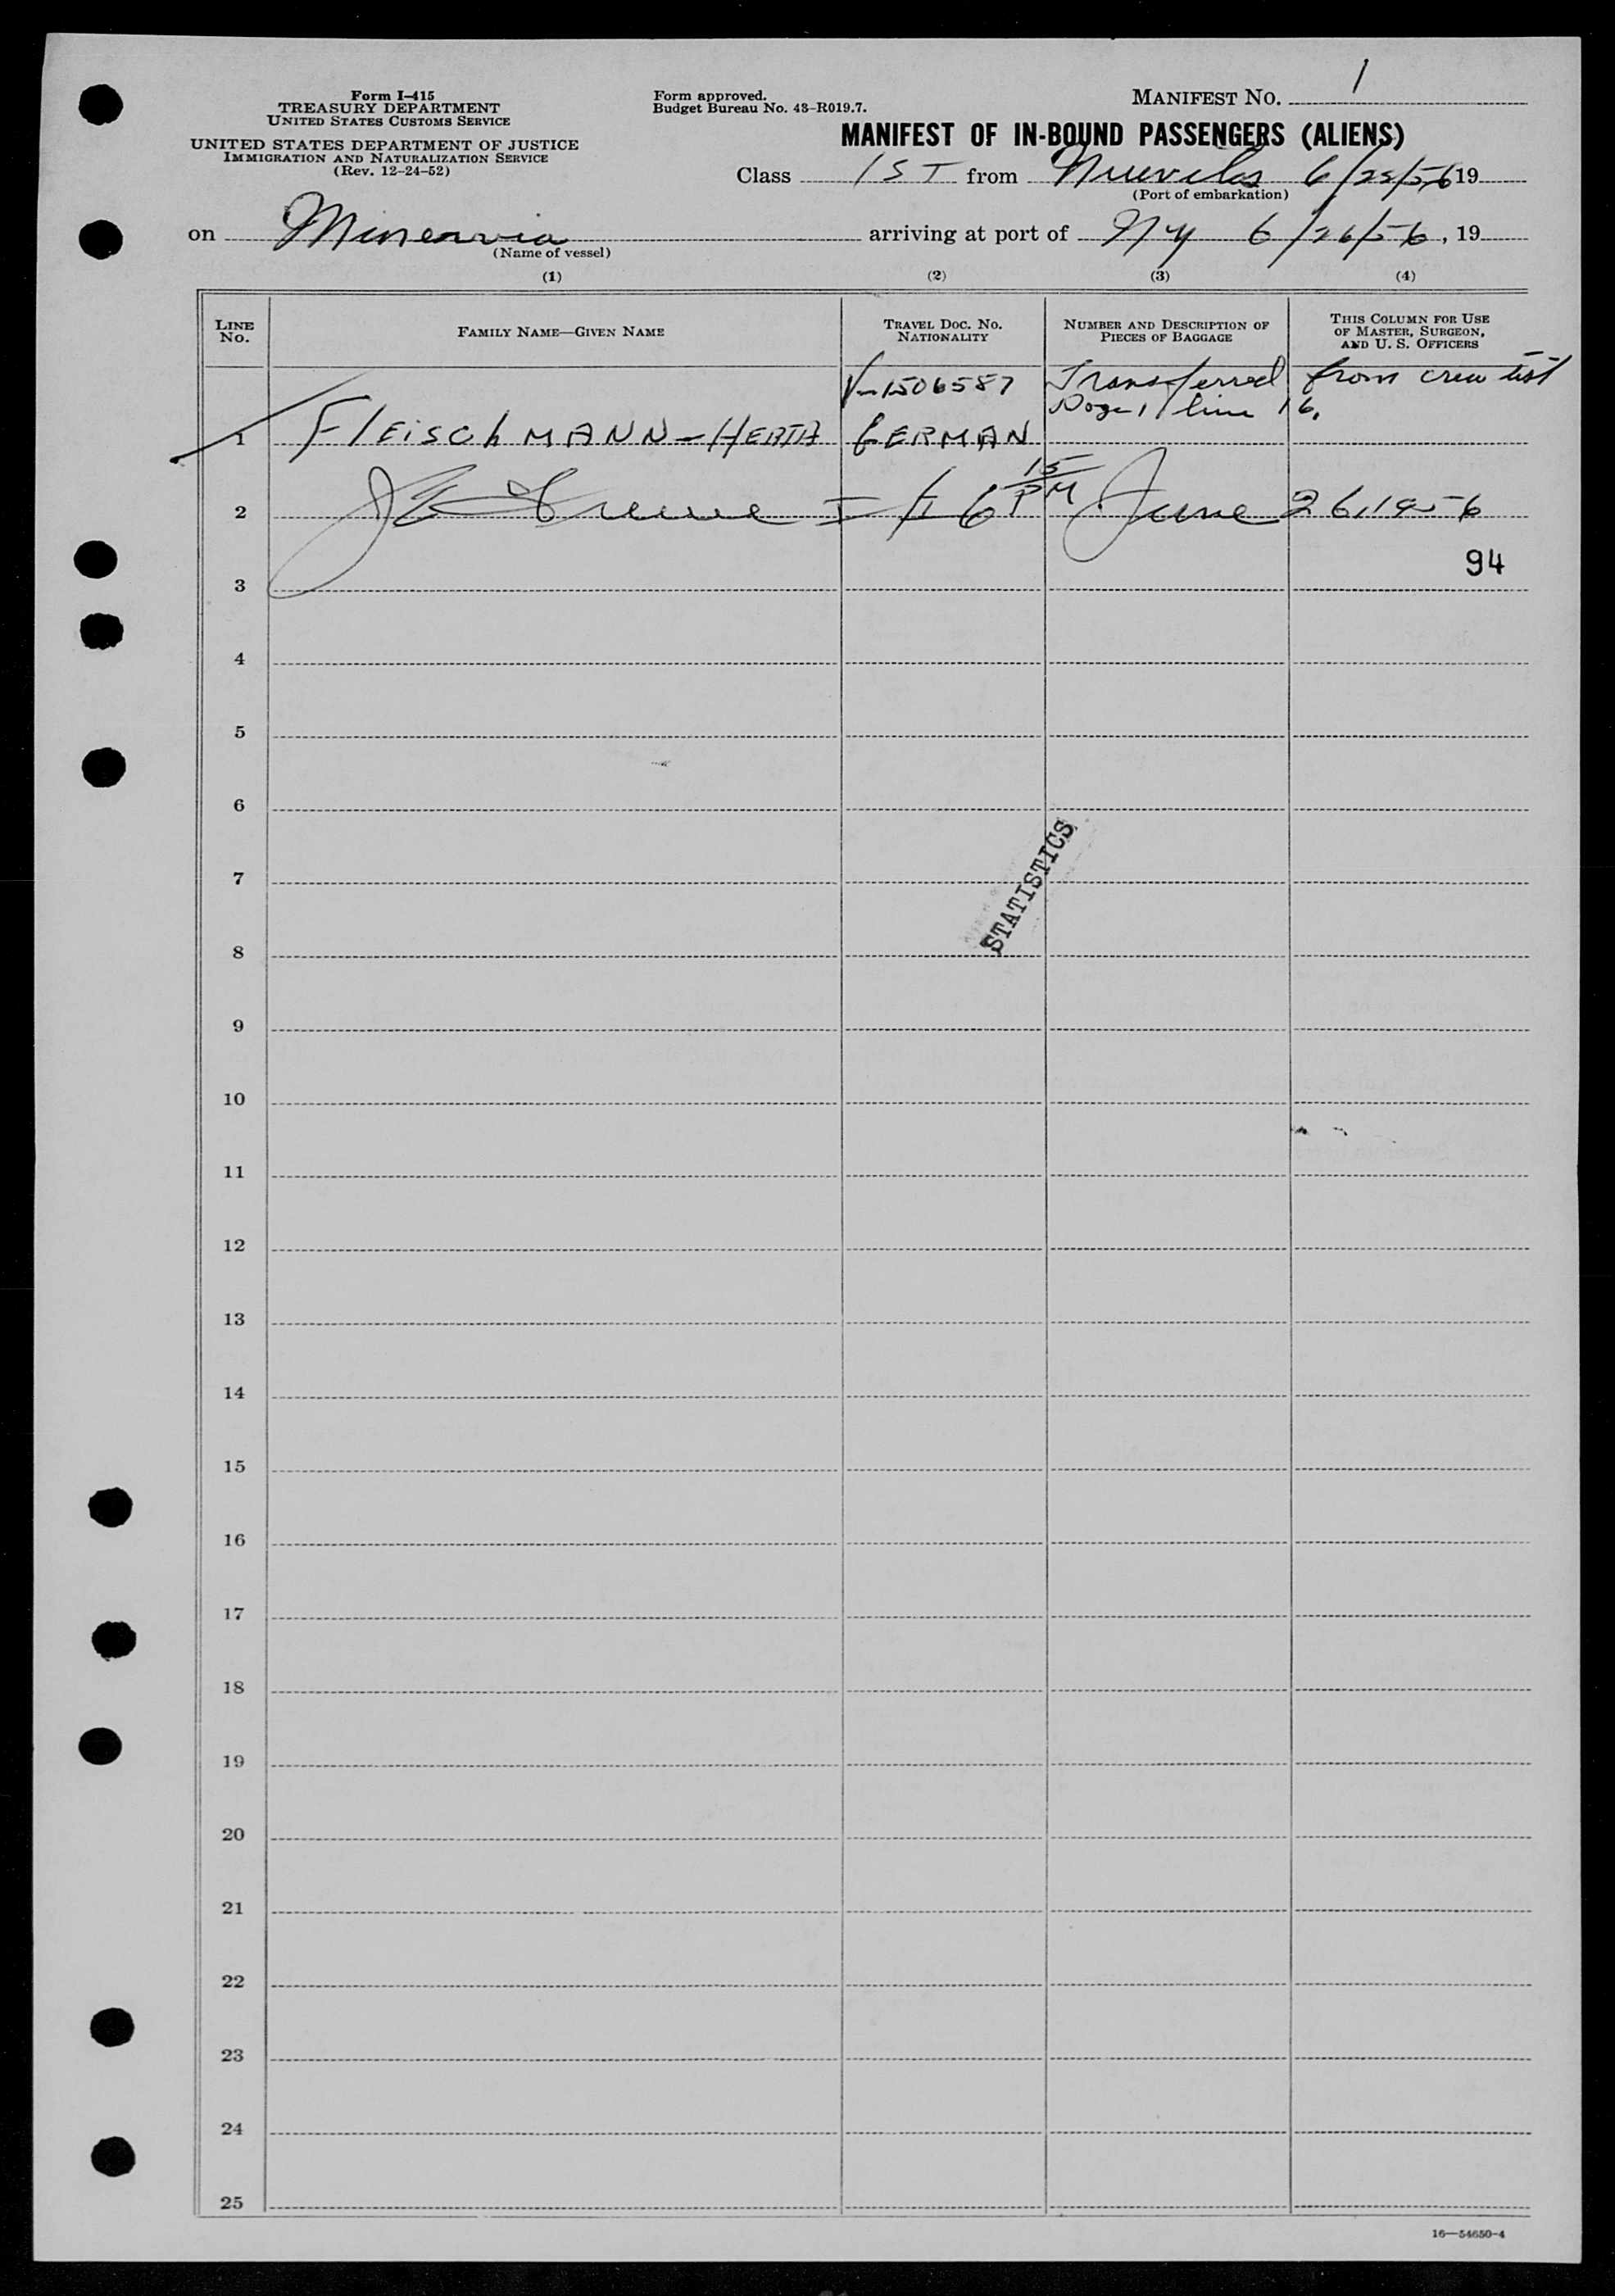 Form I-415
TREASURY DEPARTMENT
UNITED STATES CUSTOMS SERVICE
UNITED STATES DEPARTMENT OF JUSTICE
IMMIGRATION AND NATURALIZATION SERVICE
(Rev. 12-24-52)
Form approved.
Budget Bureau No. 43-R019.7.
MANIFEST NO. 1
MANIFEST OF IN-BOUND PASSENGERS (ALIENS)
Class 1ST from 19
(Port of embarkation)
on Minervia arriving at port of NY 6/26/56, 19
(Name of vessel)
(1) (2) (3) (4)
LINE NO. FAMILY NAME—GIVEN NAME TRAVEL DOC. NO. NATIONALITY NUMBER AND DESCRIPTION OF PIECES OF BAGGAGE THIS COLUMN FOR USE OF MASTER, SURGEON, AND U. S. OFFICERS
V-1506587 Transferred from crew list
Page 1 line 16.
1 FLEISCHMANN-HERTA GERMAN
2 6 15 PM June 26, 1956
94
3
4
5
6
7
STATISTICS
8
9
10
11
12
13
14
15
16
17
18
19
20
21
22
23
24
25
16—54650-4